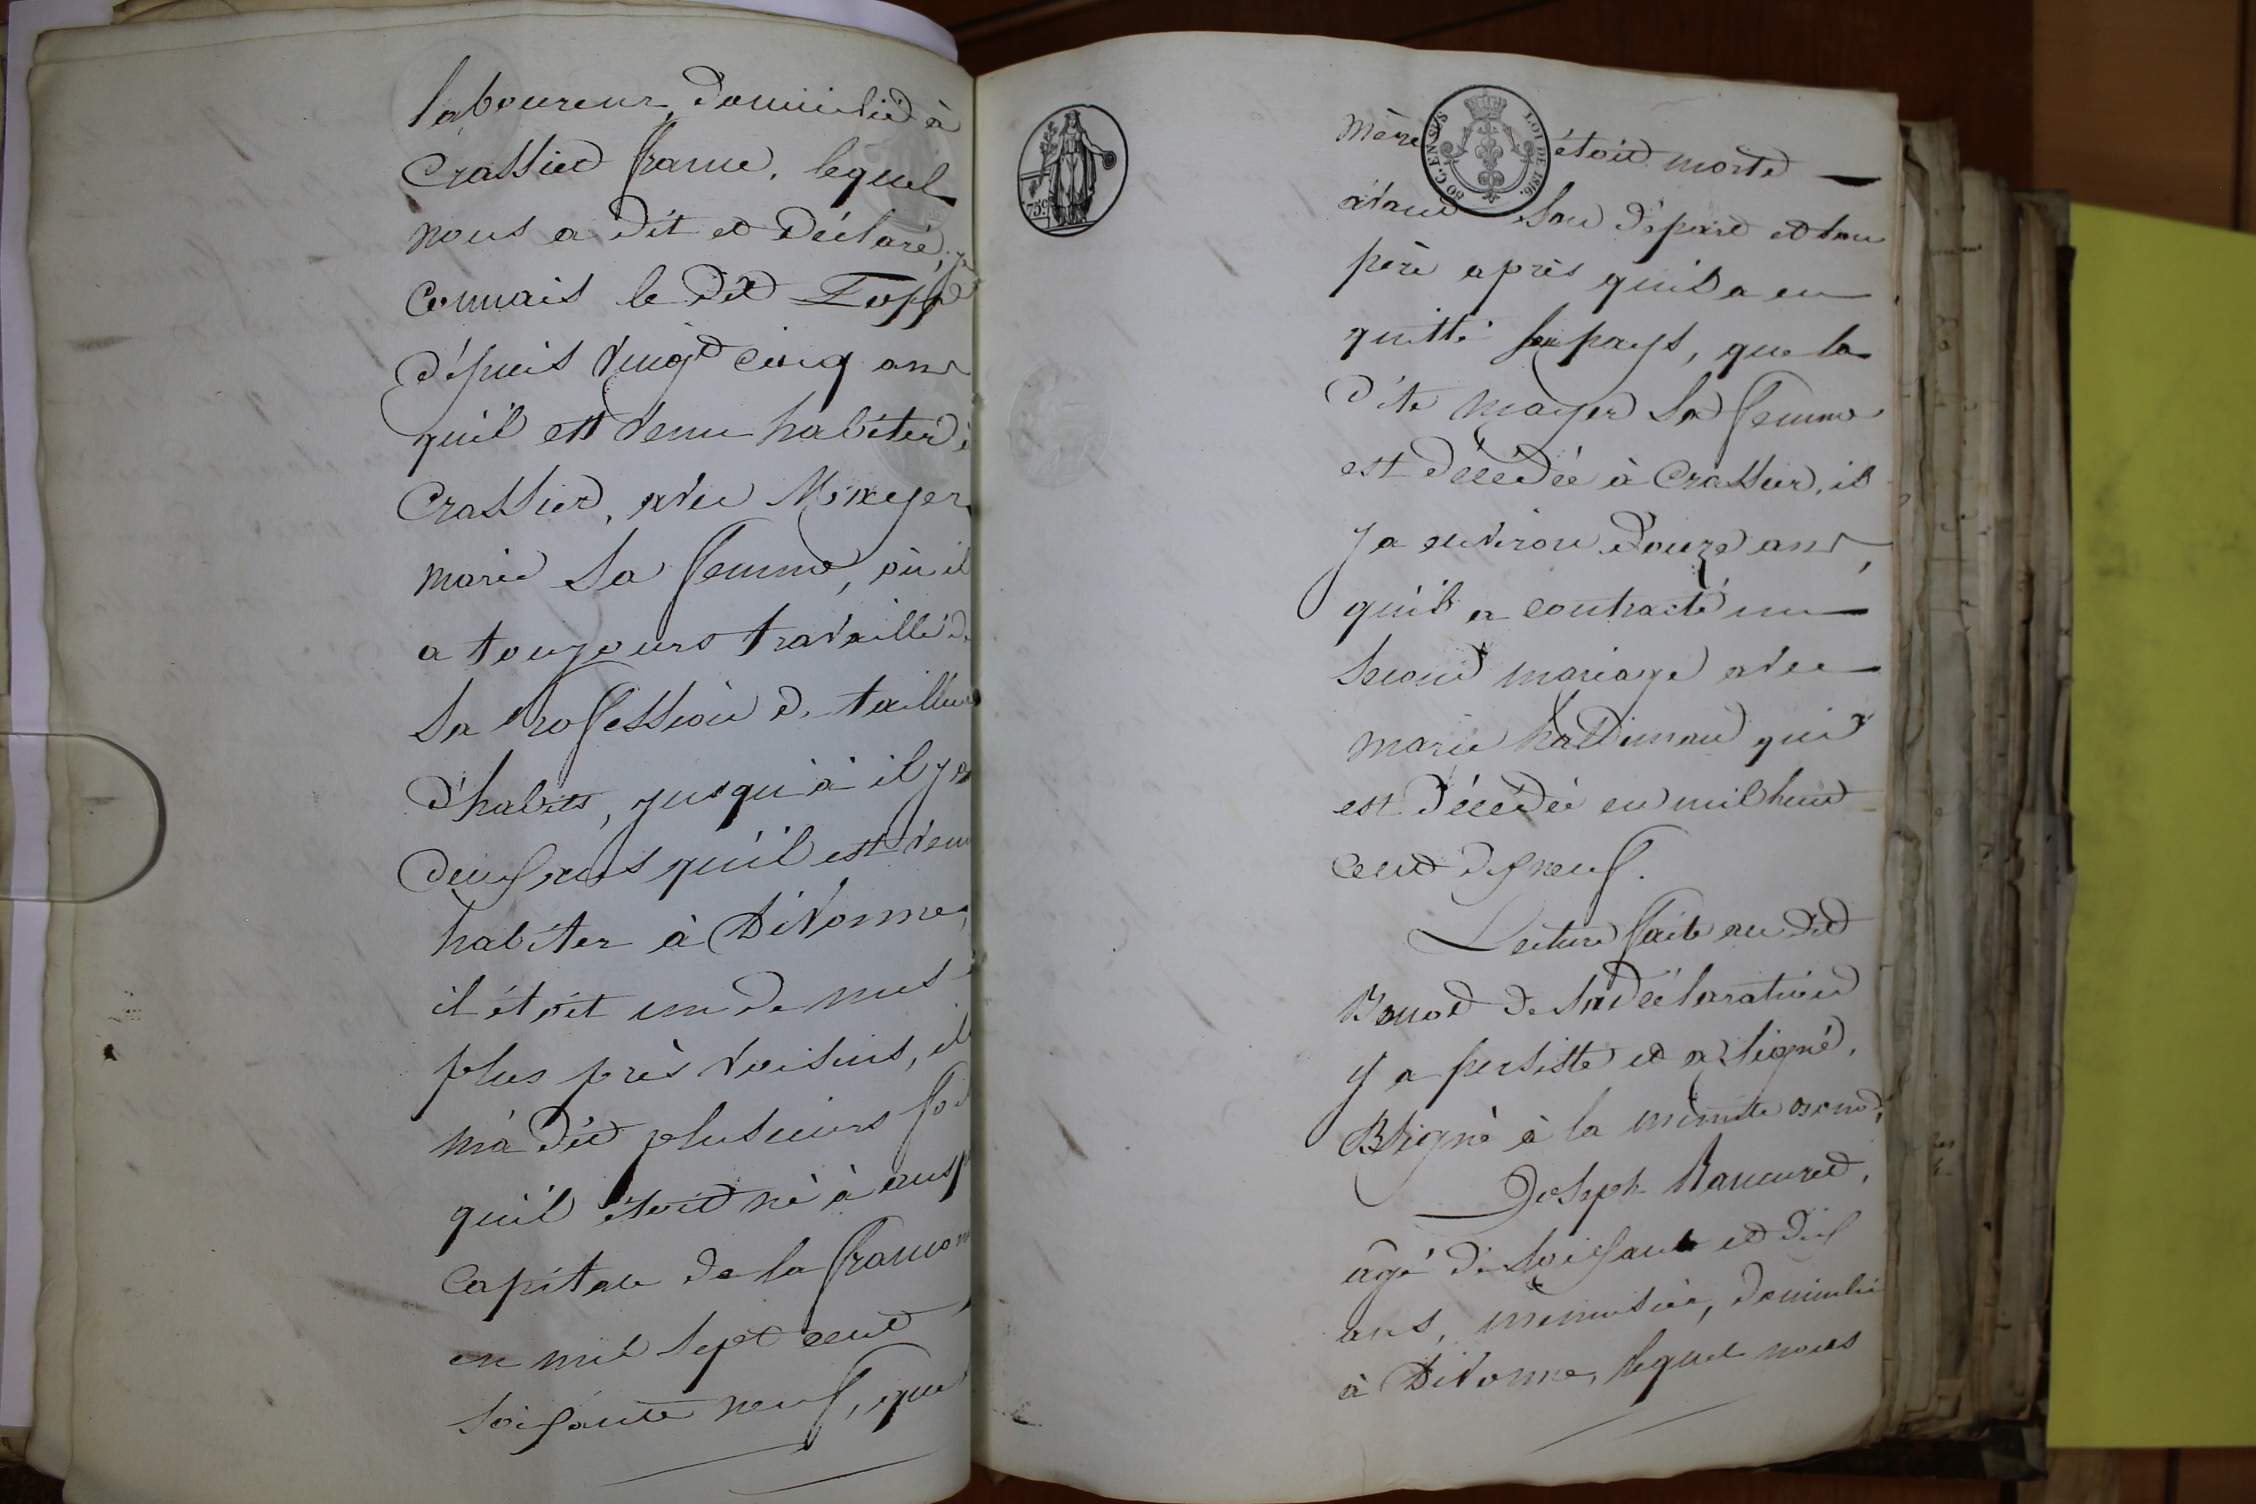 laboureur, domicilié à
Crassier france, lequel
nous a dit et déclaré, je
Connais le dit Topf
dépuis vingt cinq ans
qu'il est venu habiter à
Crassier, avec Mayer
marie sa femme, où il
a toujours travaillé de
sa Profession de tailleur
d'habits, jusqu'à il y a
deux ans qu'il est venu
habiter à Divonne,
il étoit un de mes
plus près voisins, il
m'a dit plusieurs fois
qu'il étoit né à
Capitale de la
en mil sept cent
soixante neuf, que
mère étoit morte
avant son départ et son
père après qu'il a eu
quitté son pays, que la
dite mayer sa femme
est décédée à Crassier, il
y a environ douze ans,
qu'il a contracté un
second mariage avec
marie haldiman qui
est décédée en mil huit
cent dix neuf.
Lecture faite au dit
de sa déclaration
y a persisté et a signé.
signé à la minute
Joseph
âgé de soixante et dix
ans, menuisier, domicilié
à Divonne, lequel nous
50 C. EN SUS
LOI DE 1816.
759